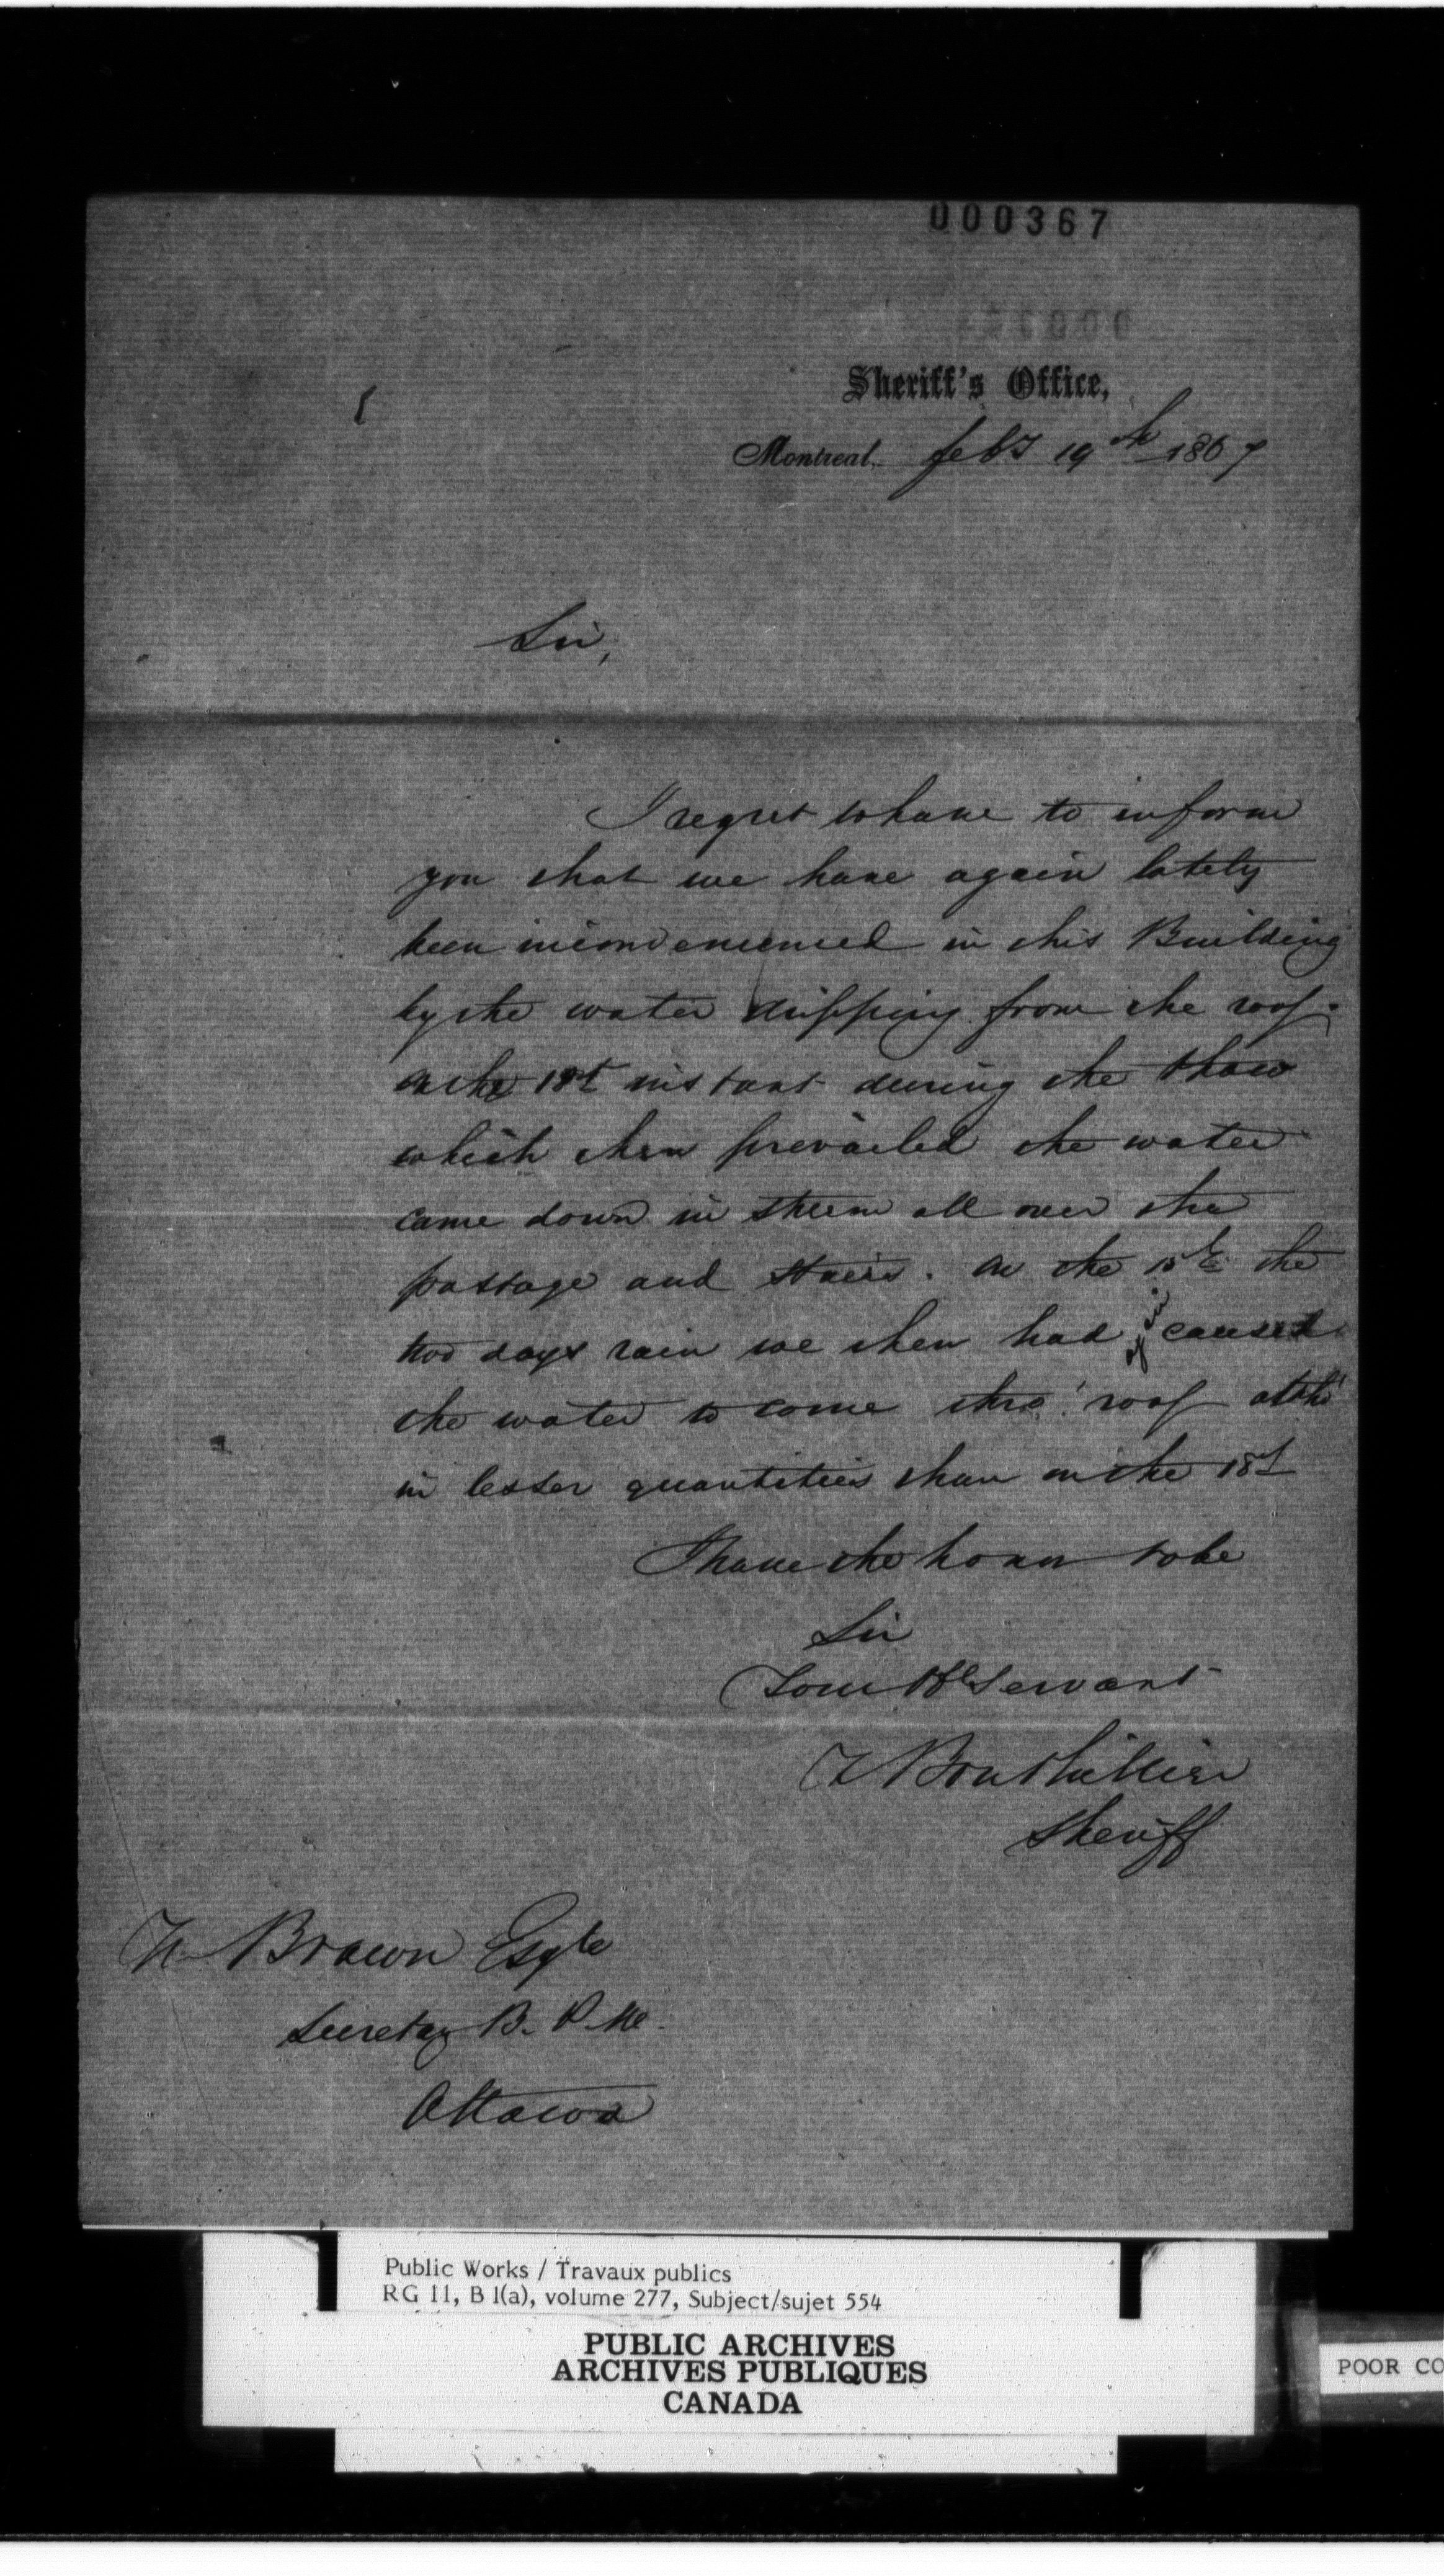 000367
Sheriff's Office,
Montreal, feby 19th 1867
Sir,
I regret to have to inform
you that we have again lately
been inconvenienced in this Building
by the water dripping from the roof.
on the instant during the thaw
which then prevailed the water
came down in stream all over the
passage and stairs. on the 15th the
two days rain we then had again caused
the water to come thro' roof altho'
in lesser quantities than on the
I have the honor to be
Sir
Your Ob Servant
T Bouthillier
Sheriff
Brown Esqre
Secretary B. P. W.
Ottawa
Public Works / Travaux publics
RG 11, B 1(a), volume 277, Subject/sujet 554
PUBLIC ARCHIVES
ARCHIVES PUBLIQUES
CANADA
POOR CO